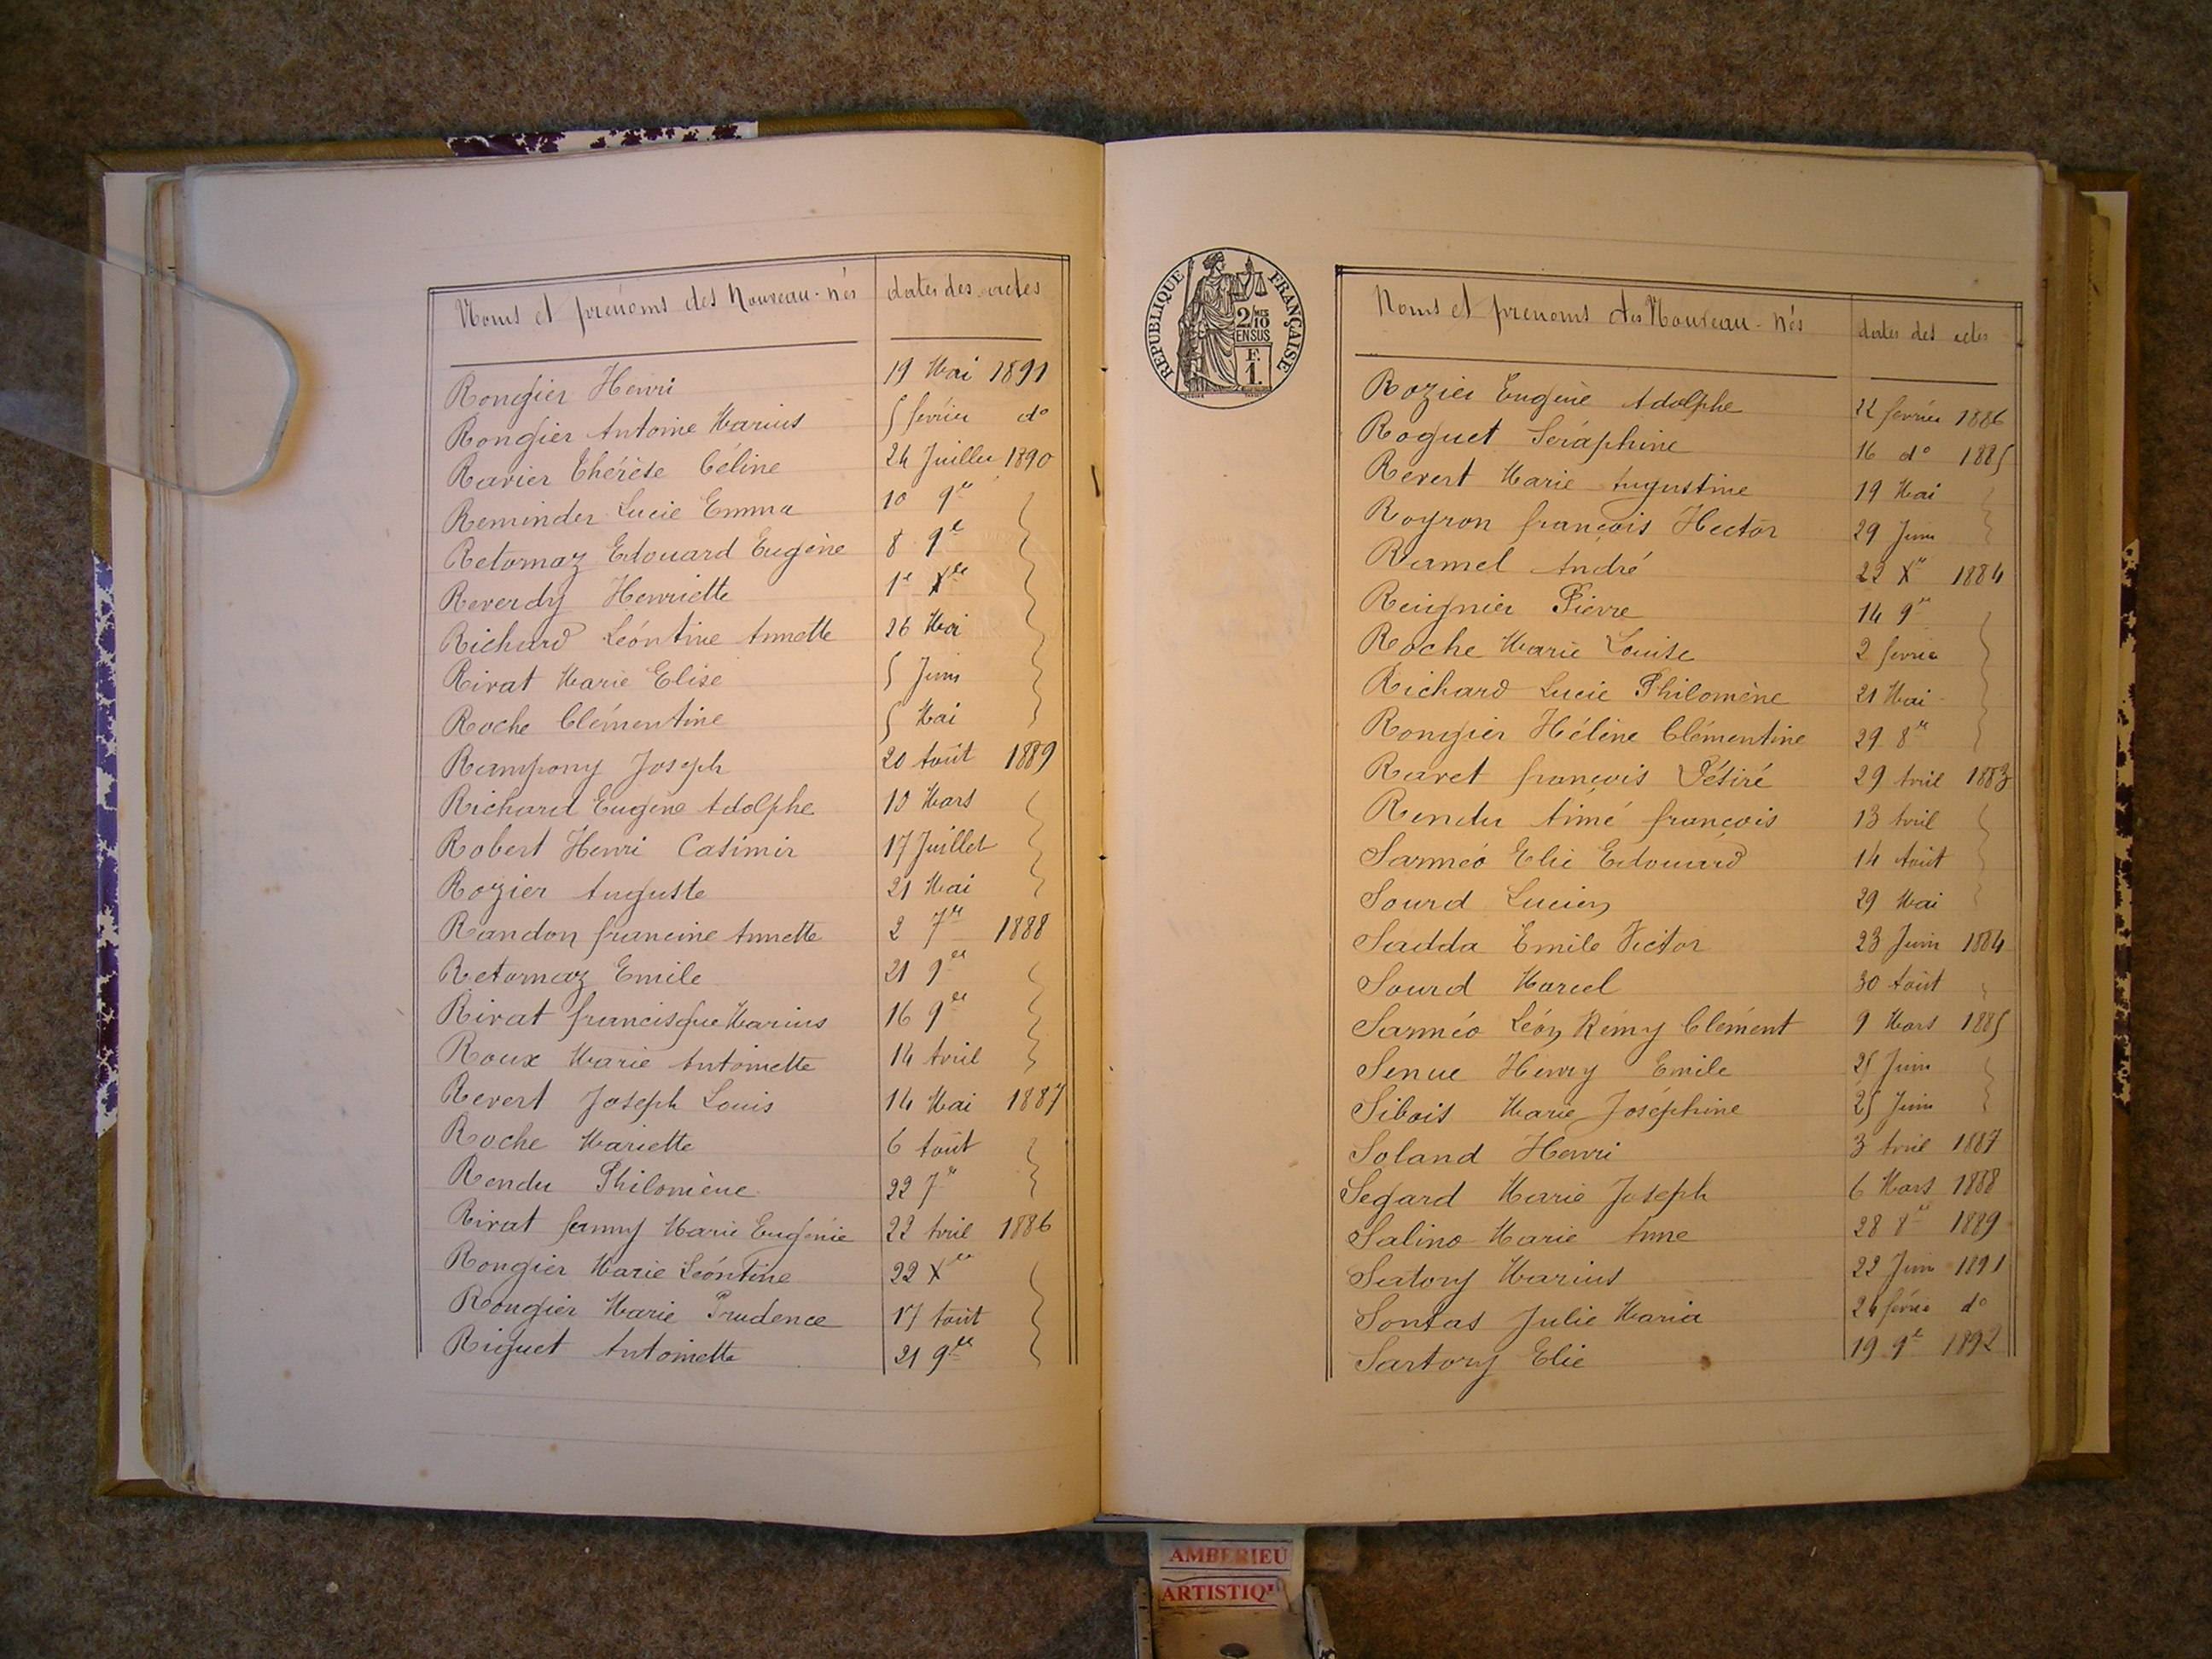 Noms et prénoms des Nouveau-nés dates des actes
Rougier Henri 19 Mai 1891
Rougier Antoine Marius 5 février do
Ravier Thérèse Céline 24 Juillet 1890
Reminder Lucie Emma 10 9re
Retornaz Edouard Eugène 8 9re
Reverdy Henriette 1er Xre
Richard Léontine Annette 26 Mai
Rivat Marie Elise 5 Juin
Roche Clémentine 5 Mai
Rampony Joseph 20 Août 1889
Richard Eugène Adolphe 10 Mars
Robert Henri Casimir 17 Juillet
Rozier Auguste 21 Mai
Randon francine Annette 2 7re 1888
Retornaz Emile 21 9re
Rivat francisque Marius 16 9re
Roux Marie Antoinette 14 Avril
Revert Joseph Louis 14 Mai 1887
Roche Mariette 6 Août
Rendu Philomène 22 7re
Rivat fanny Marie Eugénie 22 Avril 1886
Rougier Marie Léontine 22 Xre
Rougier Marie Prudence 17 Août
Riguet Antoinette 21 9re
REPUBLIQUE FRANÇAISE
2/10 MES
EN SUS
F.
1.
Noms et prénoms des Nouveau-nés dates des actes
Rozier Eugène Adolphe 22 février 1886
Roguet Séraphine 16 do 1885
Revert Marie Augustine 19 Mai
Royron françois Hector 29 Juin
Ramel André 22 Xre 1884
Reignier Pierre 14 9re
Roche Marie Louise 2 février
Richard Lucie Philomène 21 Mai
Rougier Hélène Clémentine 29 8re
Ravet françois Désiré 29 Avril 1883
Rendu Aimé françois 13 Avril
Sarméo Elie Edouard 14 Août
Sourd Lucien 29 Mai
Sadda Emile Victor 23 Juin 1884
Sourd Marcel 30 Août
Sarméo Léon Rémy Clément 9 Mars 1885
Senue Henry Emile 25 Juin
Sibois Marie Joséphine 25 Juin
Soland Henri 3 Avril 1887
Segard Marie Joseph 6 Mars 1888
Salino Marie Anne 28 8re 1889
Satory Marius 22 Juin 1891
Sontas Julie Maria 24 février do
Sartory Elie 19 9re 1892
AMBERIEU
ARTISTIQU